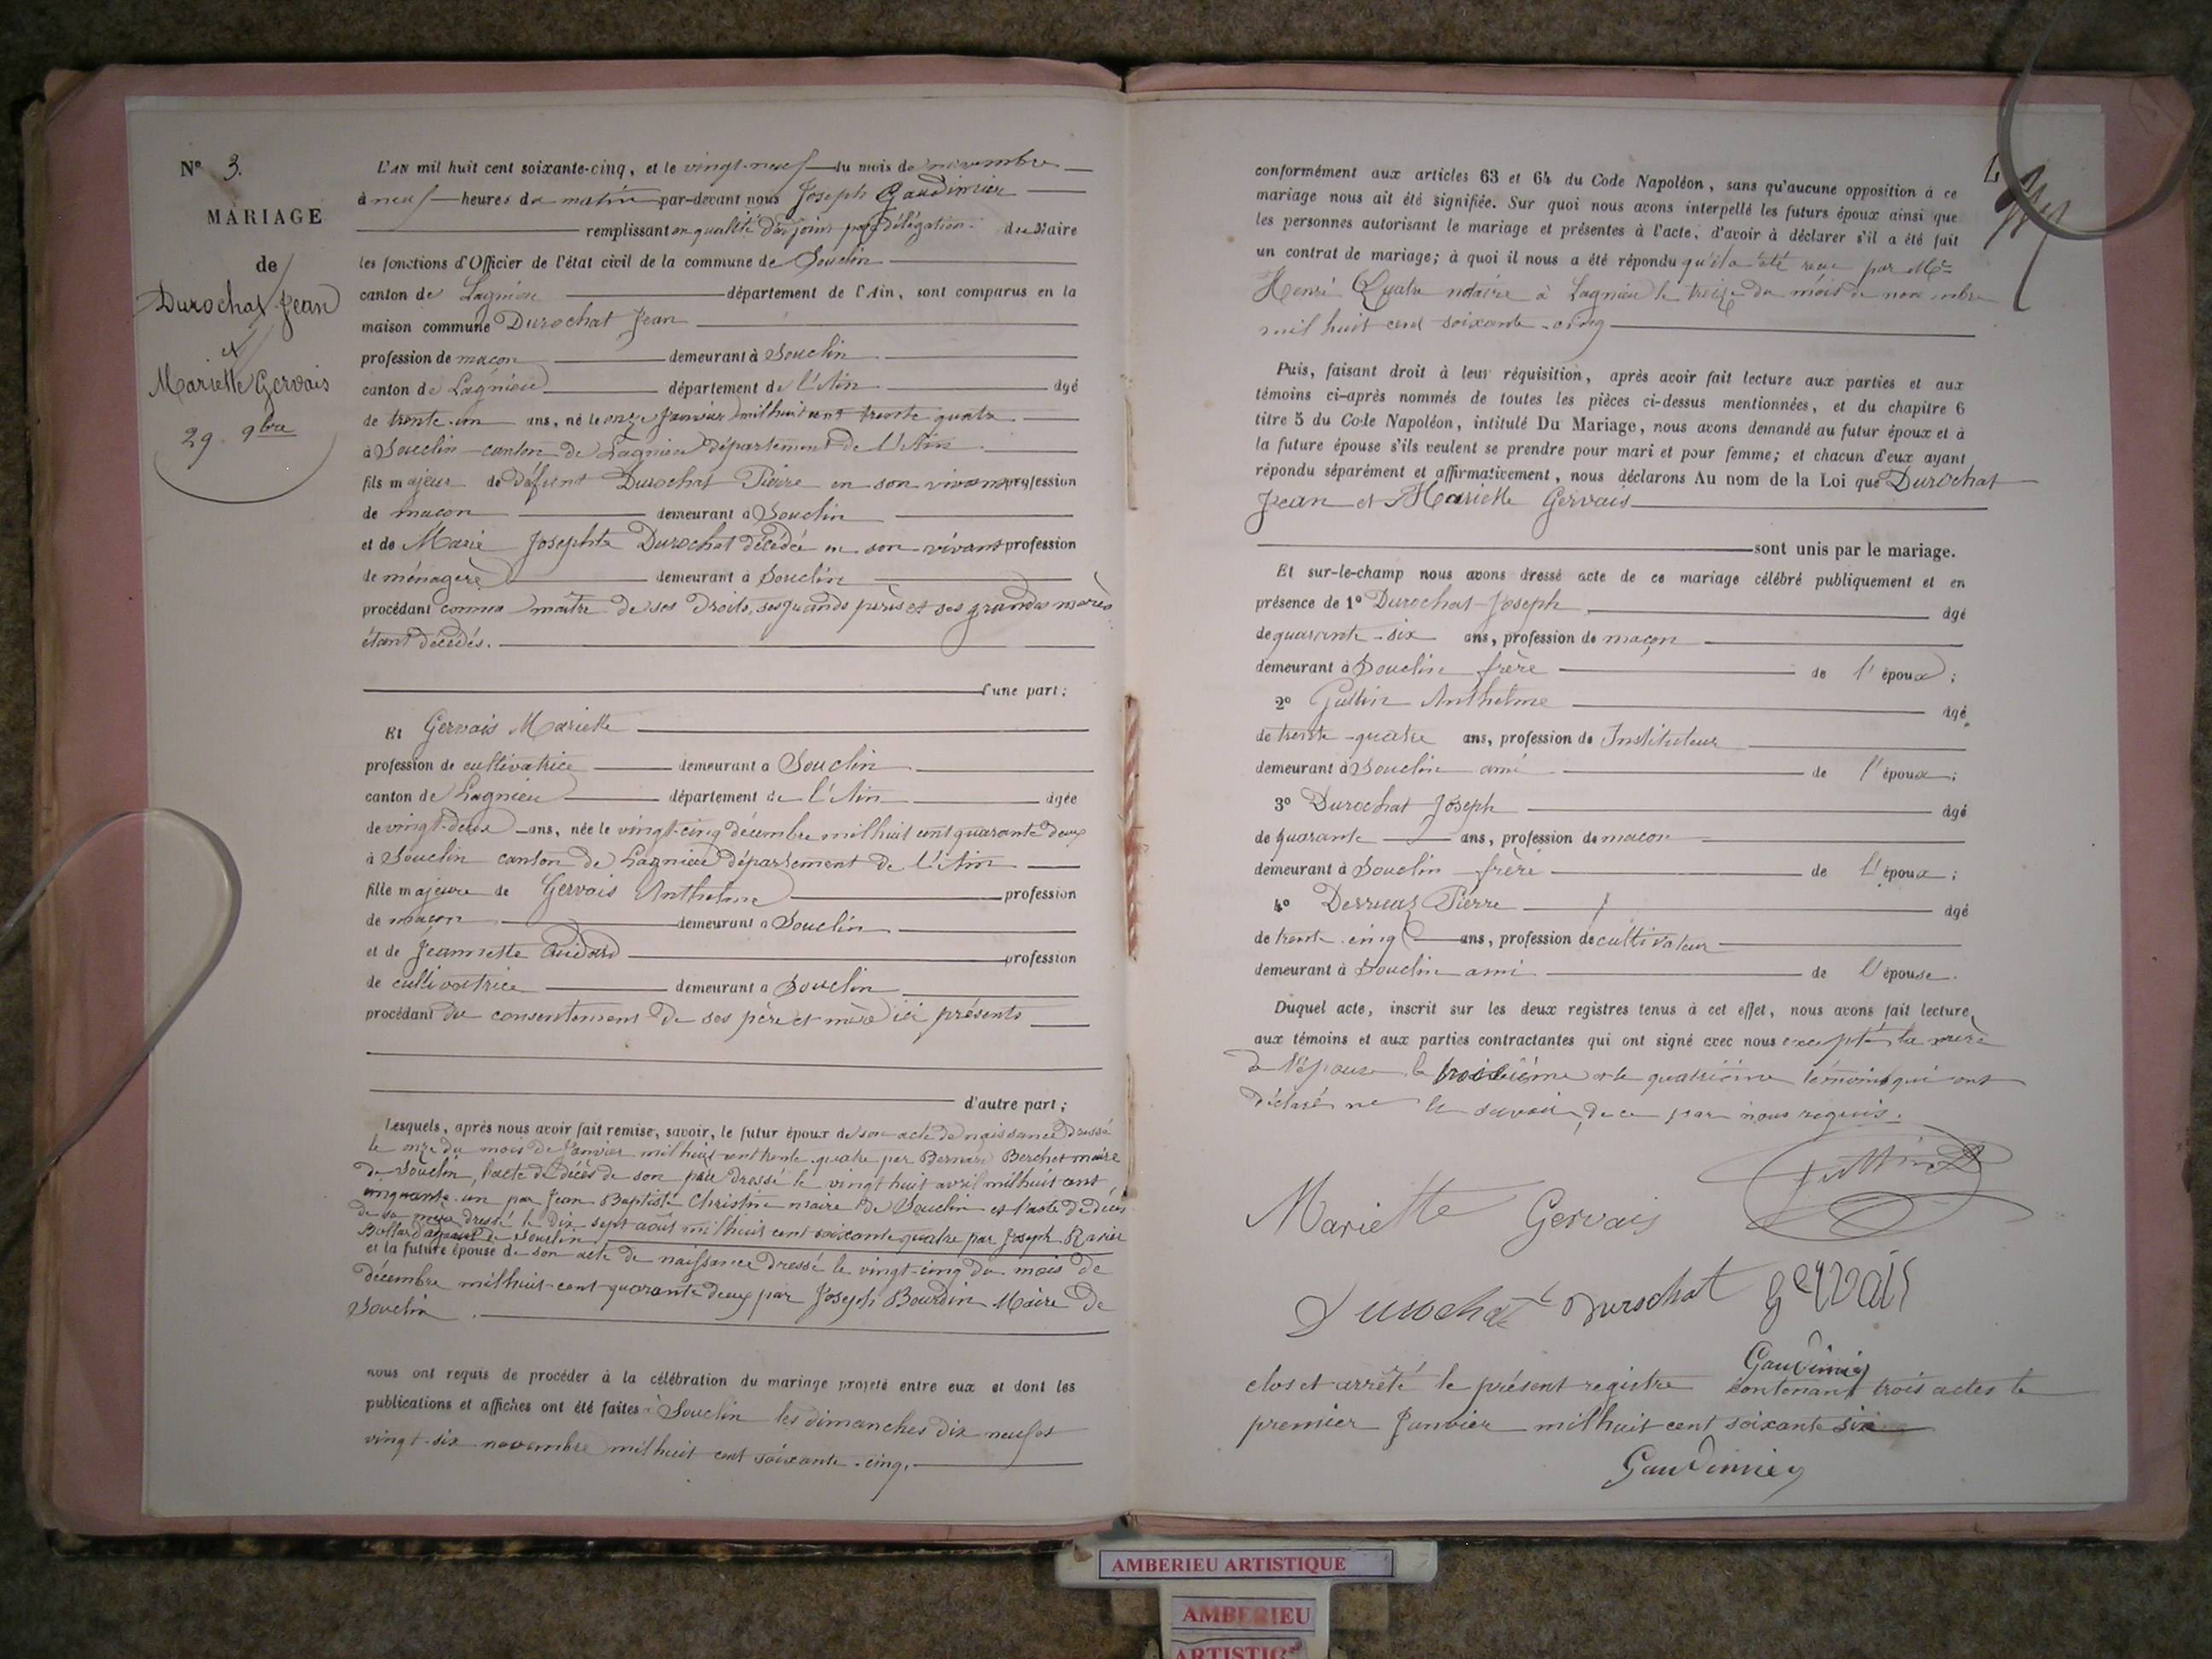 N° 3.
MARIAGE
de
Durochat Jean
&
Mariette Gervais
29 9bre
L'AN mil huit cent soixante-cinq, et le vingt-neuf du mois de novembre
à neuf heures du matin par-devant nous Joseph Gaudimier
remplissant en qualité d'adjoint par délégation du Maire
les fonctions d'Officier de l'état civil de la commune de Souclin
canton de Lagnieu département de l'Ain, sont comparus en la
maison commune Durochat Jean
profession de maçon demeurant à Souclin
canton de Lagnieu département de l'Ain âgé
de trente-un ans, né le onze Janvier mil huit cent trente quatre
à Souclin canton de Lagnieu département de l'Ain
fils majeur de défunt Durochat Pierre en son vivant profession
de maçon demeurant à Souclin
et de Marie Josephte Durochat décédée en son vivant profession
de ménagère demeurant à Souclin
procédant comme maître de ses droits, ses grands pères et ses grandes mères
étant décédés.
d'une part;
Et Gervais Mariette
profession de cultivatrice demeurant à Souclin
canton de Lagnieu département de l'Ain âgée
de vingt-deux ans, née le vingt-cinq décembre mil huit cent quarante deux
à Souclin canton de Lagnieu département de l'Ain
fille majeure de Gervais Anthelme profession
de maçon demeurant à Souclin
et de Jeannette profession
de cultivatrice demeurant à Souclin
procédant du consentement de ses père et mère ici présents
d'autre part;
Lesquels, après nous avoir fait remise, savoir, le futur époux de son acte de naissance dressé
le onze du mois de Janvier mil huit cent trente quatre par Bernard Berchet maire
de Souclin, l'acte de décès de son père dressé le vingt huit avril mil huit cent
cinquante-un par Jean Baptiste Christin maire de Souclin et l'acte de décès
de sa mère dressé le dix sept août mil huit cent soixante quatre par Joseph Ravier
de Souclin
et la future épouse de son acte de naissance dressé le vingt-cinq du mois de
décembre mil huit cent quarante deux par Joseph Bourdin Maire de
Souclin
nous ont requis de procéder à la célébration du mariage projeté entre eux et dont les
publications et affiches ont été faites à Souclin les dimanches dix neuf et
vingt-six novembre mil huit cent soixante-cinq,
conformément aux articles 63 et 64 du Code Napoléon, sans qu'aucune opposition à ce
mariage nous ait été signifiée. Sur quoi nous avons interpellé les futurs époux ainsi que
les personnes autorisant le mariage et présentes à l'acte, d'avoir à déclarer s'il a été fait
un contrat de mariage; à quoi il nous a été répondu qu'il a été reçu par Me
Henri Quatre notaire à Lagnieu le treize du mois de novembre
mil huit cent soixante-cinq
Puis, faisant droit à leur réquisition, après avoir fait lecture aux parties et aux
témoins ci-après nommés de toutes les pièces ci-dessus mentionnées, et du chapitre 6
titre 5 du Code Napoléon, intitulé Du Mariage, nous avons demandé au futur époux et à
la future épouse s'ils veulent se prendre pour mari et pour femme; et chacun d'eux ayant
répondu séparément et affirmativement, nous déclarons Au nom de la Loi que Durochat
Jean et Mariette Gervais
sont unis par le mariage.
Et sur-le-champ nous avons dressé acte de ce mariage célébré publiquement et en
présence de 1° Durochat Joseph âgé
de quarante-six ans, profession de maçon
demeurant à Souclin frère de l'époux;
2° Guttin Anthelme âgé
de trente-quatre ans, profession de Instituteur
demeurant à Souclin ami de l'époux;
3° Durochat Joseph âgé
de quarante ans, profession de maçon
demeurant à Souclin frère de l'époux;
4° Pierre âgé
de trente-cinq ans, profession de cultivateur
demeurant à Souclin ami de l'épouse.
Duquel acte, inscrit sur les deux registres tenus à cet effet, nous avons fait lecture
aux témoins et aux parties contractantes qui ont signé avec nous excepté la mère
de l'épouse, le troisième et le quatrième témoins qui ont
déclaré ne le savoir, de ce par nous requis.
Guttin
Mariette Gervais
Durochat Durochat Gervais
Gaudimier
clos et arrêté le présent registre contenant trois actes le
premier Janvier mil huit cent soixante six
Gaudimier
AMBERIEU ARTISTIQUE
AMBERIEU
ARTISTIQ